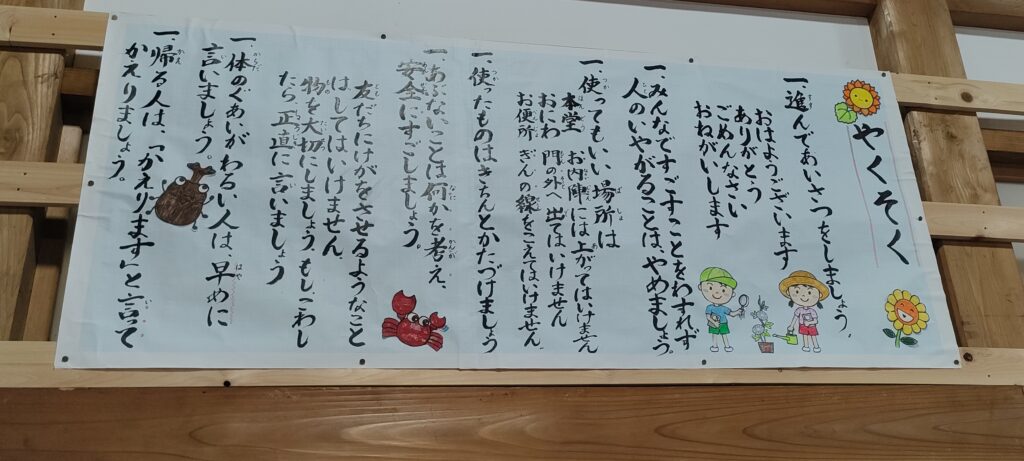 やくそく
一、進んであいさつをしましょう、
おはようございます
ありがとう
ごめんなさい
おねがいします
一、みんなですごすことをわすれず
人のいやがることは、やめましょう。
一、使ってもいい場所は
本堂 お内陣には上がってはいけません
おにわ 門の外へ出てはいけません
お便所 ぎんの線をこえてはいけません。
一、使ったものはきちんとかたづけましょう
一、あぶないことは何かを考え、
安全にすごしましょう。
友だちにけがをさせるようなこと
はしてはいけません
物を大切にしましょう。もしこわし
たら正直に言いましょう
一、体のぐあいがわるい人は、早めに
言いましょう。
一、帰る人は、「かえります」と言って
かえりましょう。